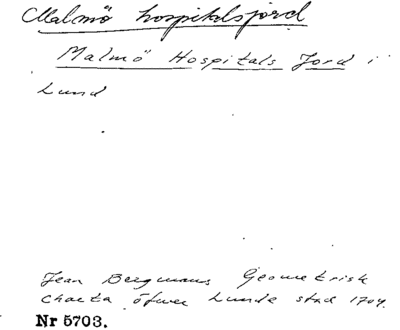 Malmö hospitalsjord
Malmö Hospitals Jord i
Lund
Jean Bergmans Geometrisk
Charta öfwer Lunds stad 1704.
Nr 5703.